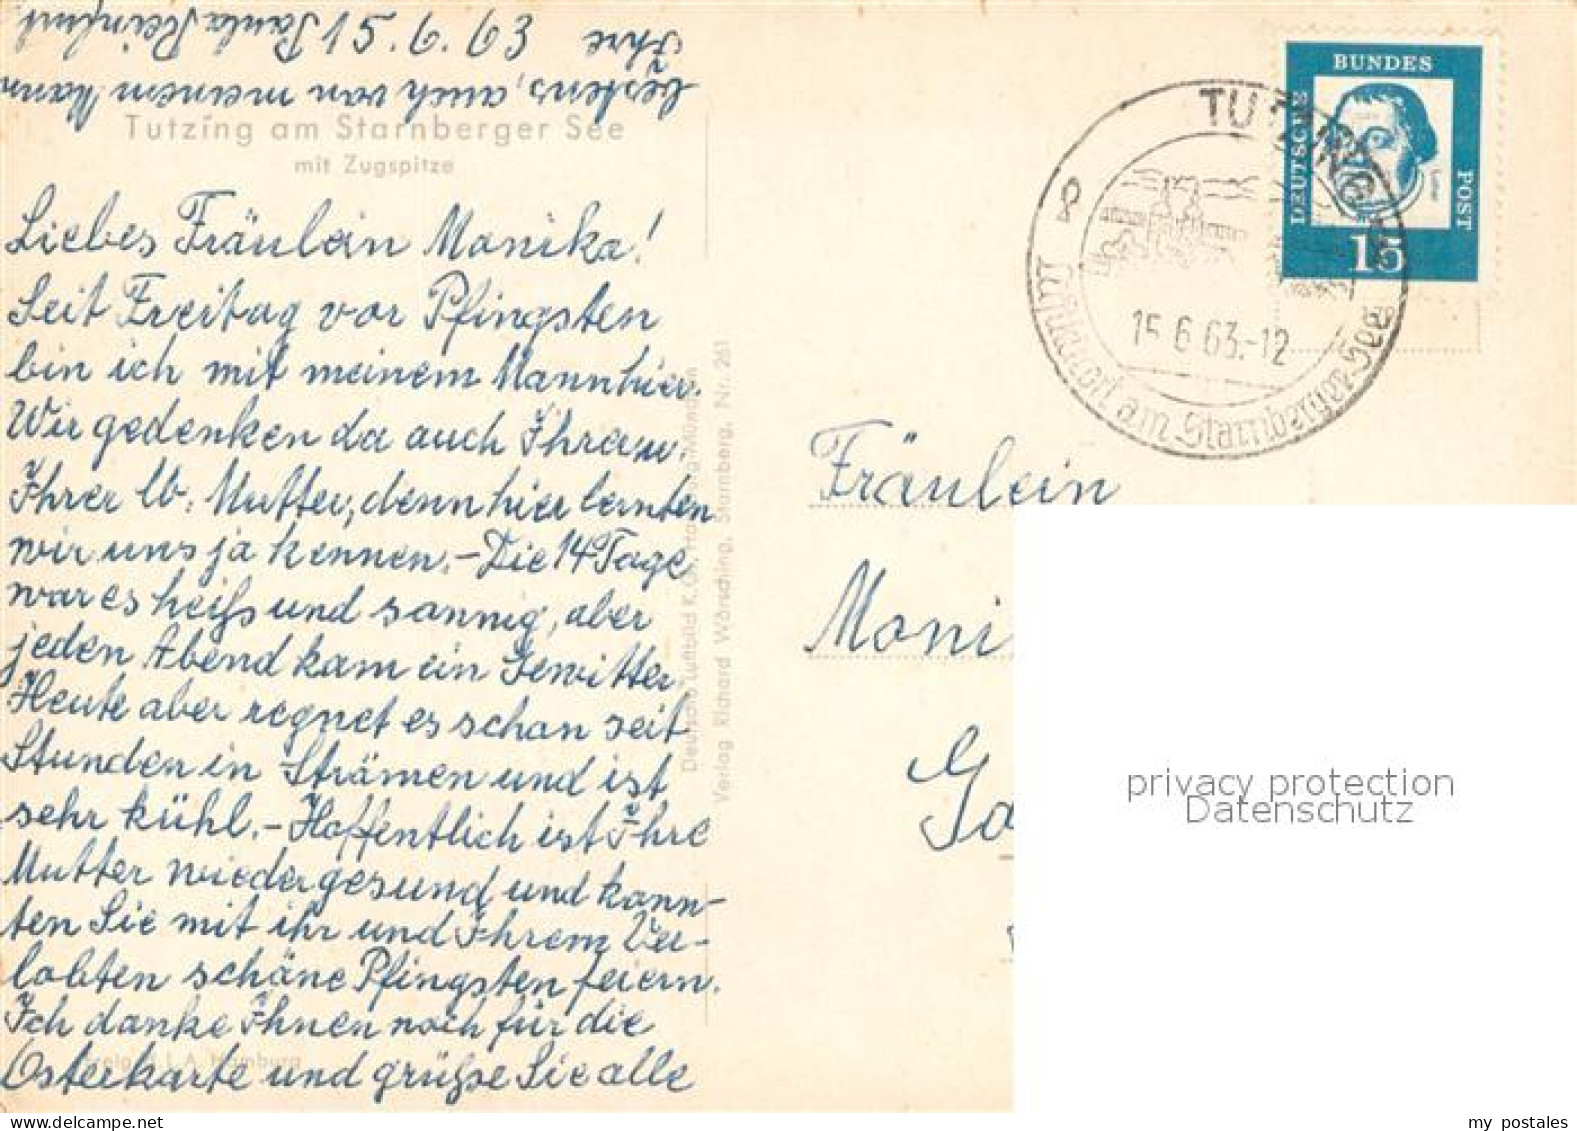 Tutzing am Starnberger See
mit Zugspitze
Liebes Fräulein Monika!
Seit Freitag vor Pfingsten
bin ich mit meinem Mann hier.
Wir gedenken da auch Ihrer u.
Ihrer lb. Mutter, denn hier lernten
wir uns ja kennen. - Die 14 Tage
war es heiß und sonnig, aber
jeden Abend kam ein Gewitter.
Heute aber regnet es schon seit
Stunden in Strömen und ist
sehr kühl. - Hoffentlich ist Ihre
Mutter wieder gesund und konn-
ten Sie mit ihr und Ihrem Ver-
lobten schöne Pfingsten feiern.
Ich danke Ihnen noch für die
Osterkarte und grüße Sie alle
bestens, auch von meinem Mann
Ihre Paula
15.6.63
Deutsche Luftbild K.G.
Verlag Richard Wörsching, Starnberg, Nr. 261
Hamburg
DEUTSCHE
BUNDES
POST
Luther
15
TUTZING
15.6.63.-12
Luftkurort am Starnberger See
Fräulein
Moni
Ga
privacy protection
Datenschutz
my postales